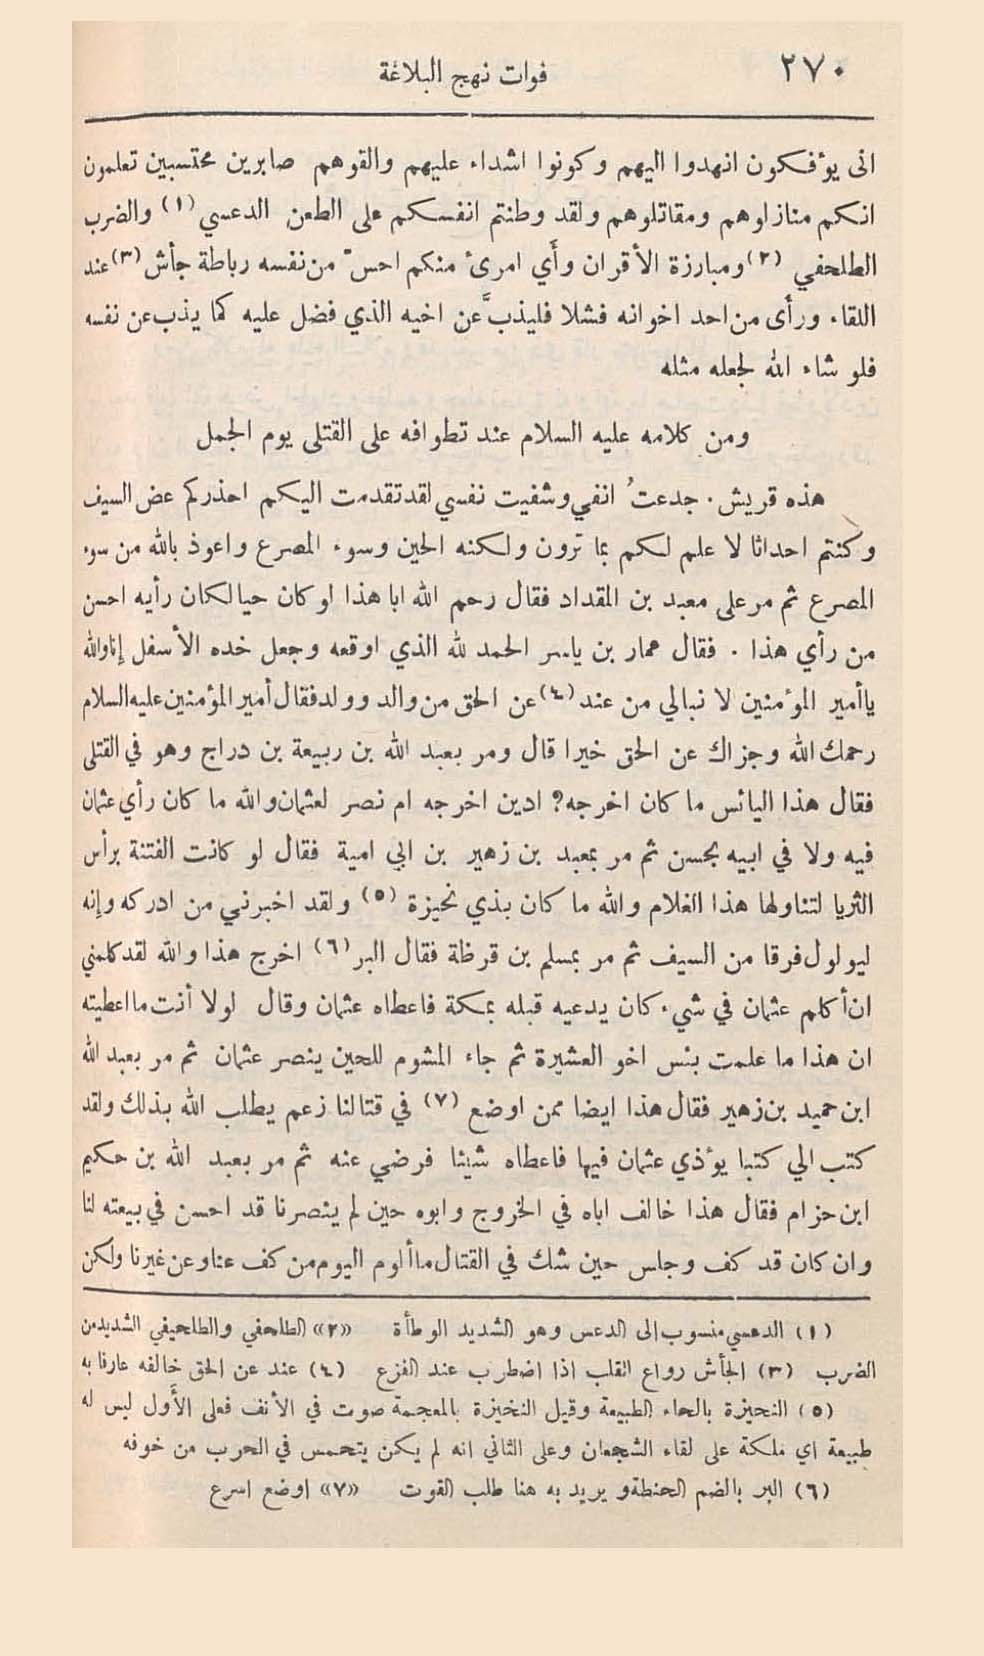 ٢٧٠
فوات نهج البلاغة
انى يؤفكون انهدوا اليهم وكونوا اشداء عليهم والقوهم صابرين محتسبين تعلمون
انكم منازلوهم ومقاتلوهم ولقد وطنتم انفسكم على الطعن الدعسي (١) والضرب
الطلحفي (٢) ومبارزة الأقران وأي امرئ منكم احسّ من نفسه رباطة جأش (٣) عند
اللقاء ورأى من احد اخوانه فشلا فليذبَّ عن اخيه الذي فضل عليه كما يذب عن نفسه
فلو شاء الله لجعله مثله
ومن كلامه عليه السلام عند تطوافه على القتلى يوم الجمل
هذه قريش . جدعتُ انفي وشفيت نفسي لقد تقدمت اليكم احذركم عض السيف
وكنتم احداثا لا علم لكم بما ترون ولكنه الحين وسوء المصرع واعوذ بالله من سوء
المصرع ثم مر على معبد بن المقداد فقال رحم الله ابا هذا لو كان حيا لكان رأيه احسن
من رأي هذا . فقال عمار بن ياسر الحمد لله الذي اوقعه وجعل خده الأسفل إنا والله
يا أمير المؤمنين لا نبالي من عند (٤) عن الحق من والد وولد فقال أمير المؤمنين عليه السلام
رحمك الله وجزاك عن الحق خيرا قال ومر بعبد الله بن ربيعة بن دراج وهو في القتلى
فقال هذا اليائس ما كان اخرجه؟ ادين اخرجه ام نصر لعثمان والله ما كان رأي عثمان
فيه ولا في ابيه بحسن ثم مر بمعبد بن زهير بن ابي امية فقال لو كانت الفتنة برأس
الثريا لتناولها هذا الغلام والله ما كان بذي نحيزة (٥) ولقد اخبرني من ادركه وإنه
ليولول فرقا من السيف ثم مر بمسلم بن قرظة فقال البر (٦) اخرج هذا والله لقد كلمني
ان أكلم عثمان في شيء كان يدعيه قبله بمكة فاعطاه عثمان وقال لولا أنت ما اعطيته
ان هذا ما علمت بئس اخو العشيرة ثم جاء المشوم للحين ينصر عثمان ثم مر بعبد الله
ابن حميد بن زهير فقال هذا ايضا ممن اوضع (٧) في قتالنا زعم يطلب الله بذلك ولقد
كتب الي كتبا يؤذي عثمان فيها فاعطاه شيئا فرضي عنه ثم مر بعبد الله بن حكيم
ابن حزام فقال هذا خالف اباه في الخروج وابوه حين لم ينصرنا قد احسن في بيعته لنا
وان كان قد كف وجلس حين شك في القتال ما ألوم اليوم من كف عنا وعن غيرنا ولكن
(١) الدعسي منسوب الى الدعس وهو الشديد الوطأة «٢» الطلحفي والطلحيفي الشديد من
الضرب (٣) الجأش رواع القلب اذا اضطرب عند الفزع (٤) عند عن الحق خالفه عارفا به
(٥) النحيزة بالحاء الطبيعة وقيل النخيزة بالمعجمة صوت في الأنف فعلى الأول ليس له
طبيعة اي ملكة على لقاء الشجعان وعلى الثاني انه لم يكن يتحمس في الحرب من خوفه
(٦) البر بالضم الحنطة ويريد به هنا طلب القوت «٧» اوضع اسرع